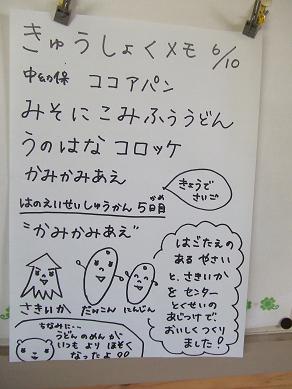 きゅうしょくメモ 6/10
ココアパン
みそにこみふううどん
うのはな コロッケ
かみかみあえ
きょうで
さいご
はのえいせいしゅうかん 5日目
"かみかみあえ"
さきいか だいこん にんじん
はごたえの
ある やさい
と、さきいか
を センター
とくせいの
あじつけで、
おいしくつくり
ました!
ちなみに‥
うどんのめんが、
いつもよりほそく
なったよ!!